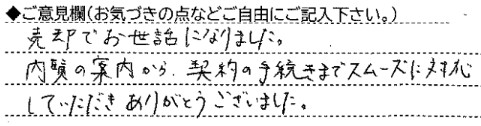 ◆ご意見欄(お気づきの点などご自由にご記入下さい。)
売却でお世話になりました。
内覧の案内から、契約の手続きまでスムーズに対応
していただきありがとうございました。